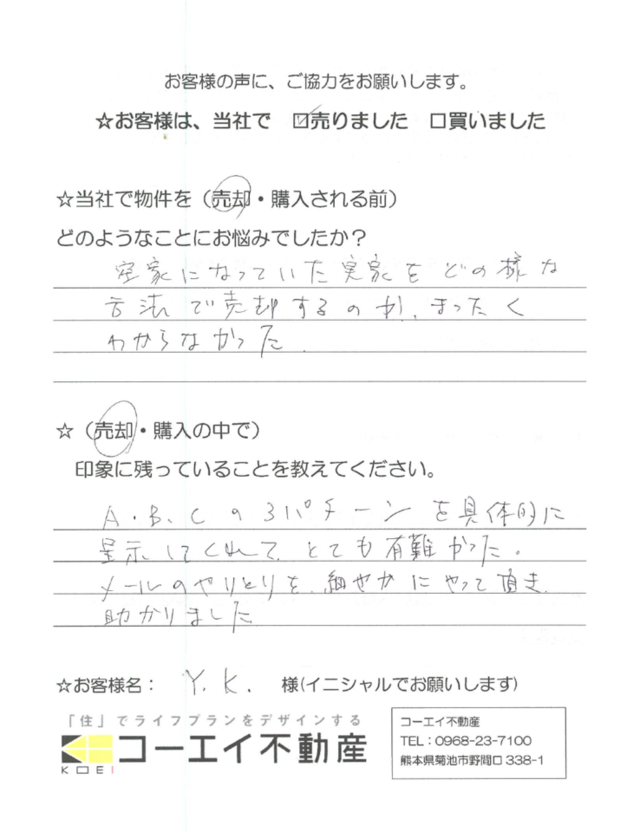 お客様の声に、ご協力をお願いします。
☆お客様は、当社で ☑売りました □買いました
☆当社で物件を（売却・購入される前）
どのようなことにお悩みでしたか？
空家になっていた実家をどの様な
方法で売却するのか、まったく
わからなかった.
☆（売却・購入の中で）
印象に残っていることを教えてください。
A.B.Cの3パターンを具体的に
呈示してくれて、とても有難かった。
メールのやりとりを、細やかにやって頂き、
助かりました
☆お客様名： Y.K. 様(イニシャルでお願いします)
「住」でライフプランをデザインする
KOEI コーエイ不動産
コーエイ不動産
TEL：0968-23-7100
熊本県菊池市野間口338-1